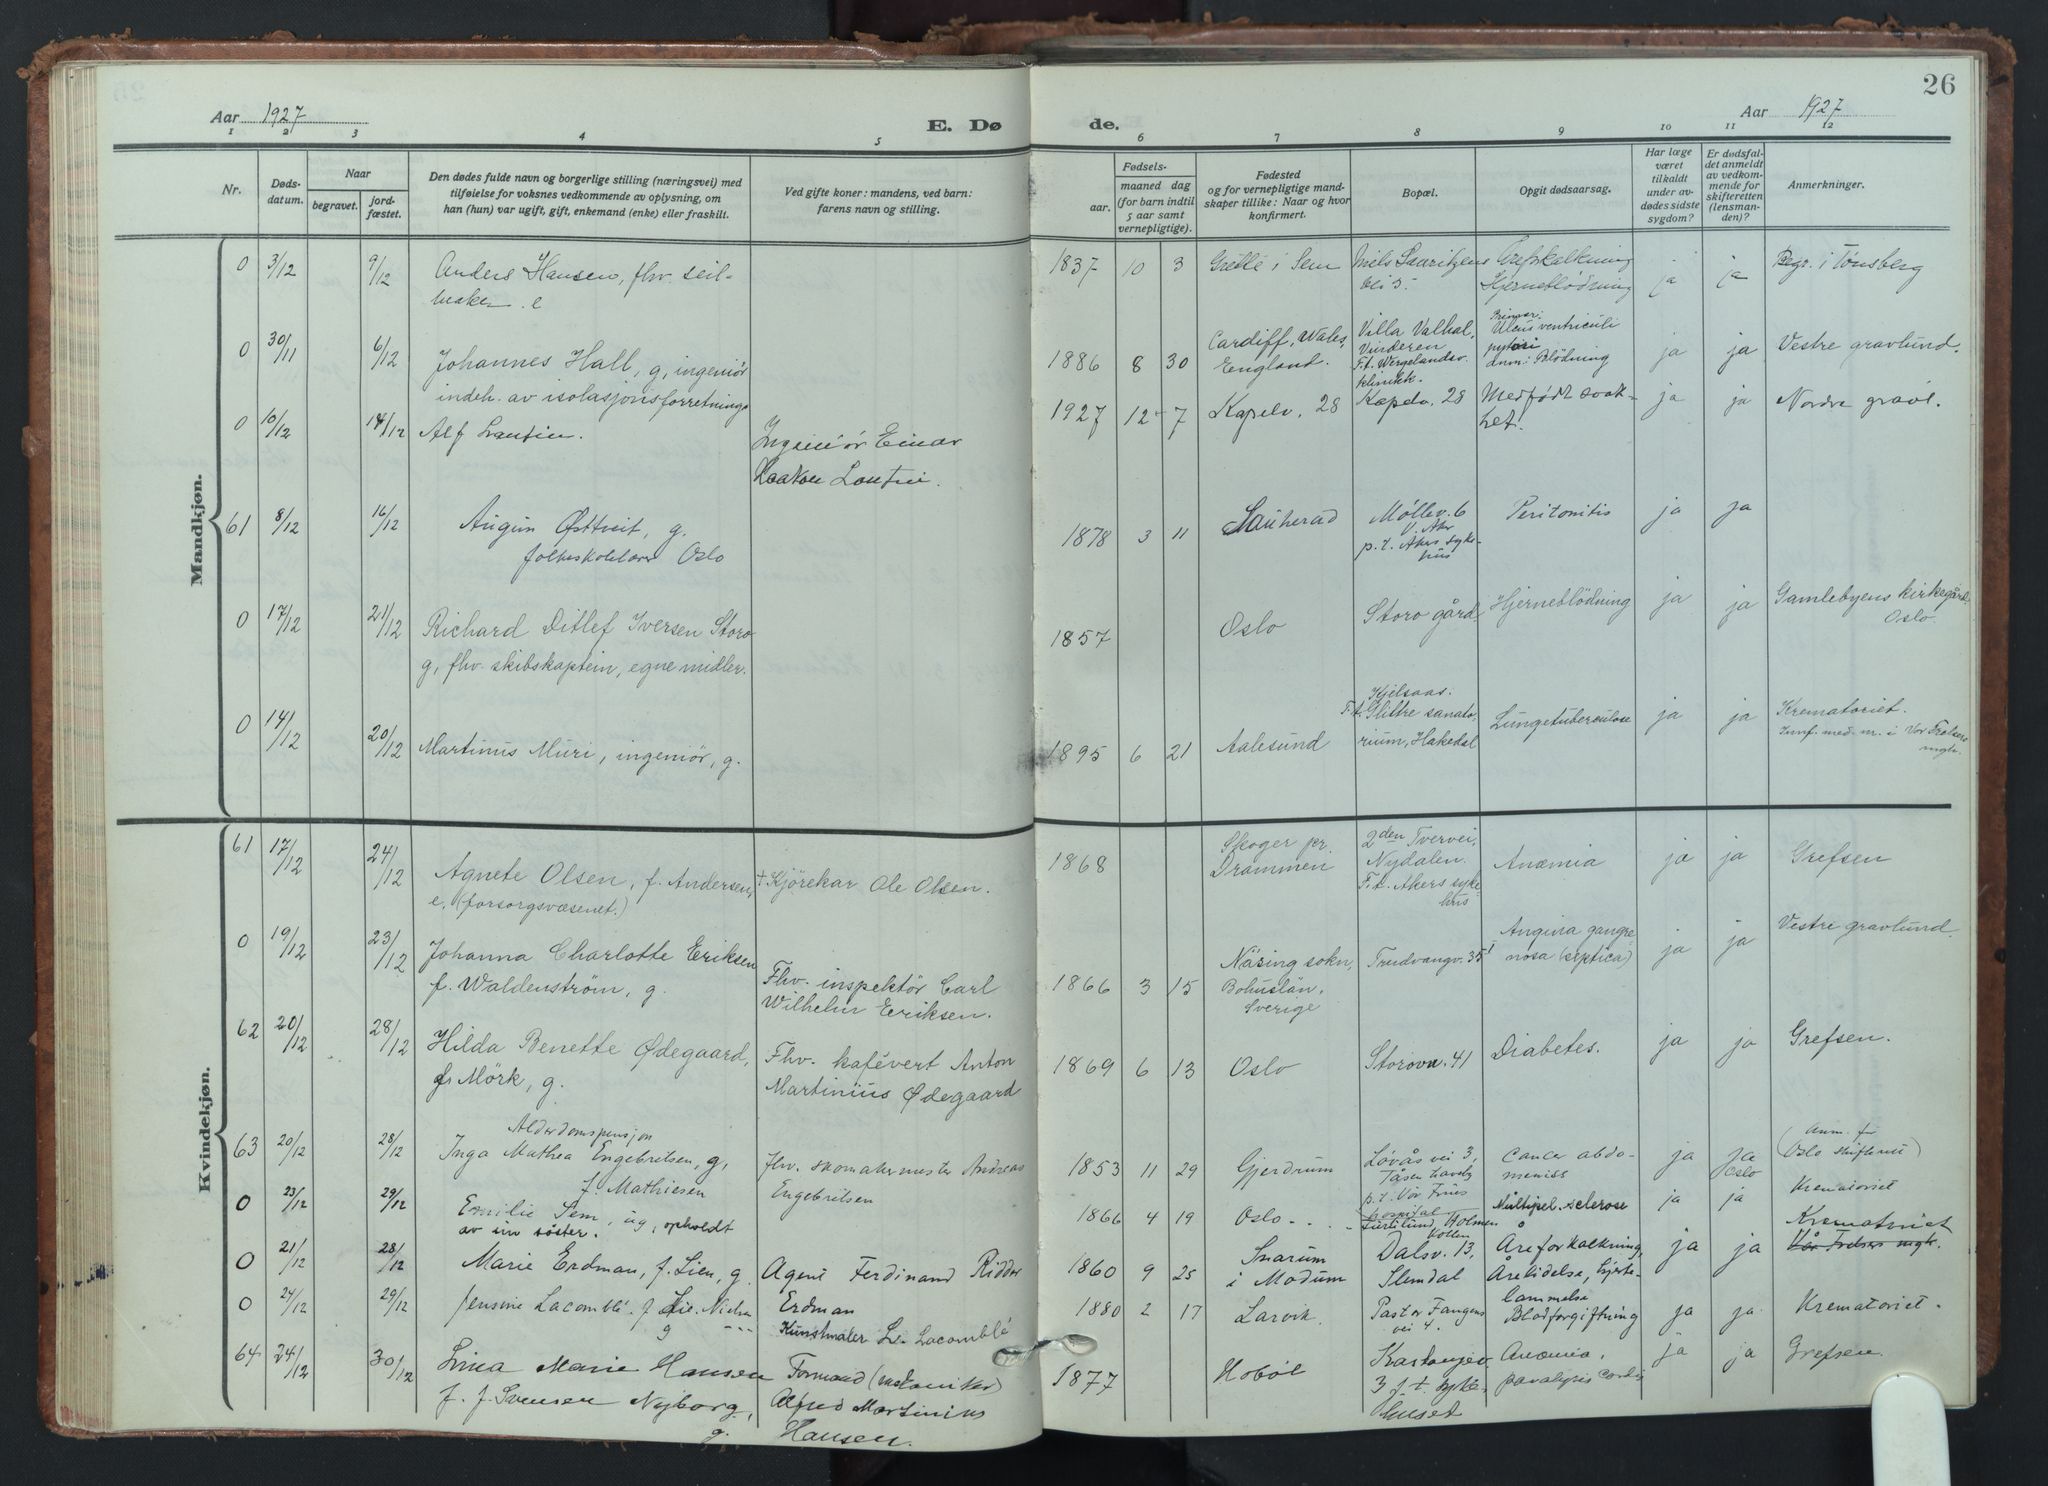 26
Aar 1927
E. Dø
de.
Aar 1927
1 2 3 4 5 6 7 8 9 10 11 12
Nr.
Døds-
datum.
Naar
begravet.
jord-
fæstet.
Den dødes fulde navn og borgerlige stilling (næringsvei) med
tilføielse for voksnes vedkommende av oplysning, om
han (hun) var ugift, gift, enkemand (enke) eller fraskilt.
Ved gifte koner: mandens, ved barn:
farens navn og stilling.
Fødsels-
aar.
maaned dag
(for barn indtil
5 aar samt
vernepligtige).
Fødested
og for vernepligtige mand-
skaper tillike: Naar og hvor
konfirmert.
Bopæl.
Opgit dødsaarsag.
Har læge
været
tilkaldt
under av-
dødes sidste
sygdom?
Er dødsfal-
det anmeldt
av vedkom-
mende for
skifteretten
(lensman-
den)?
Anmerkninger.
Mandkjøn.
0 3/12 9/12 Anders Hansen, fhv. seil- 1837 10 3 Grette i Sem Niels Lauritzens Årefskalkning ja ja Begr. i Tønsberg
maker. e vei 5. Hjerneblödning
0 30/11 6/12 Johannes Hall, g, ingeniør 1886 8 30 Cardiff, Wales, England. Villa Valhal, Ulcus ventriculi ja ja Vestre gravlund.
indeh. av isolasjonsforretning Vinderen F.t. Wergelandsv. klinikk. pylori Blödning
0 10/12 14/12 Alf Lautin. Ingeniör Einar 1927 12 7 Kapelv. 28 Kapelv. 28 Medfödt svak- ja ja Nordre gravl.
Haakon Lautin. het.
61 8/12 16/12 Østtveit, g. 1878 3 11 Sauherad Møllev. 6 Peritonitis ja ja
Oslo V. Aker
p.t. Akers syke-
hus
0 17/12 21/12 Richard Ditlef Iversen Storo 1857 Oslo Storo gård, Hjerneblödning ja ja Gamlebyens kirkegård
g, fhv. skibskaptein, egne midler. Oslo.
0 14/12 20/12 Martinus Muri, ingeniør, g. 1895 6 21 Aalesund Kjelsaas. Lungetuberculose ja ja Krematoriet.
F.t. Glittre sanato- med nr. i Vor Frelsers
rium, Hakedal mgh.
Kvindekjøn.
61 17/12 24/12 Agnete Olsen, f. Andersen, † Kjörekar Ole Olsen. 1868 Skoger pr. Drammen 2den Tvervei, Anæmia ja ja Grefsen
e. (forsorgsvæsenet.) Nydalen. F.t. Akers syke
hus
0 19/12 23/12 Johanna Charlotte Eriksen Fhv. inspektör Carl 1866 3 15 Näsing sokn, Trudvangv. 35 Angina gangre ja ja Vestre gravlund
f. Waldenström, g. Wilhelm Eriksen. Bohuslän, Sverige nosa (septica)
62 20/12 28/12 Hilda Benette Ødegaard, Fhv. kafévert Anton 1869 6 13 Oslo Storovn. 41 Diabetes. ja ja Grefsen.
f. Mörk, g. Martinius Ødegaard
Alderdomspensjon
63 20/12 28/12 Inga Mathea Engebritsen, g, fhv. skomakermester Andreas 1853 11 29 Gjerdrum Løvås vei 3, Cancer abdo- ja ja (Anm. for
f. Mathiesen Engebritsen Tåsen p.t. Vor Frues hospital Oslo Oslo skifterett)
0 23/12 29/12 Emilie Sem, ug, opholdt 1866 4 19 Oslo Holmen Multipel sclerose ja ja Krematoriet
av sin söster.
0 21/12 28/12 Marie Erdman, f. Lien, g Agent Ferdinand Ridder 1860 9 25 Snarum Dalsv. 13, Åreforkalkning, ja ja Krematoriet
Erdman i Modum Slemdal hjerte- Vår Frelsers mgh.
lammelse
0 24/12 29/12 Jensine Lacomblé f. Lie-Nielsen Kunstmaler L. Lacomblé 1880 2 17 Larvik Pastor Fangens Blodforgiftning ja ja Krematoriet.
g vei 4.
64 24/12 30/12 Marie Hansen Formand 1877 Hobøl Kastanjev. Anæmia, ja ja Grefsen.
f. Svensen Nyborg, Alfred Martinius 3 f.t. syke- paralysis cordis
g. Hansen. huset